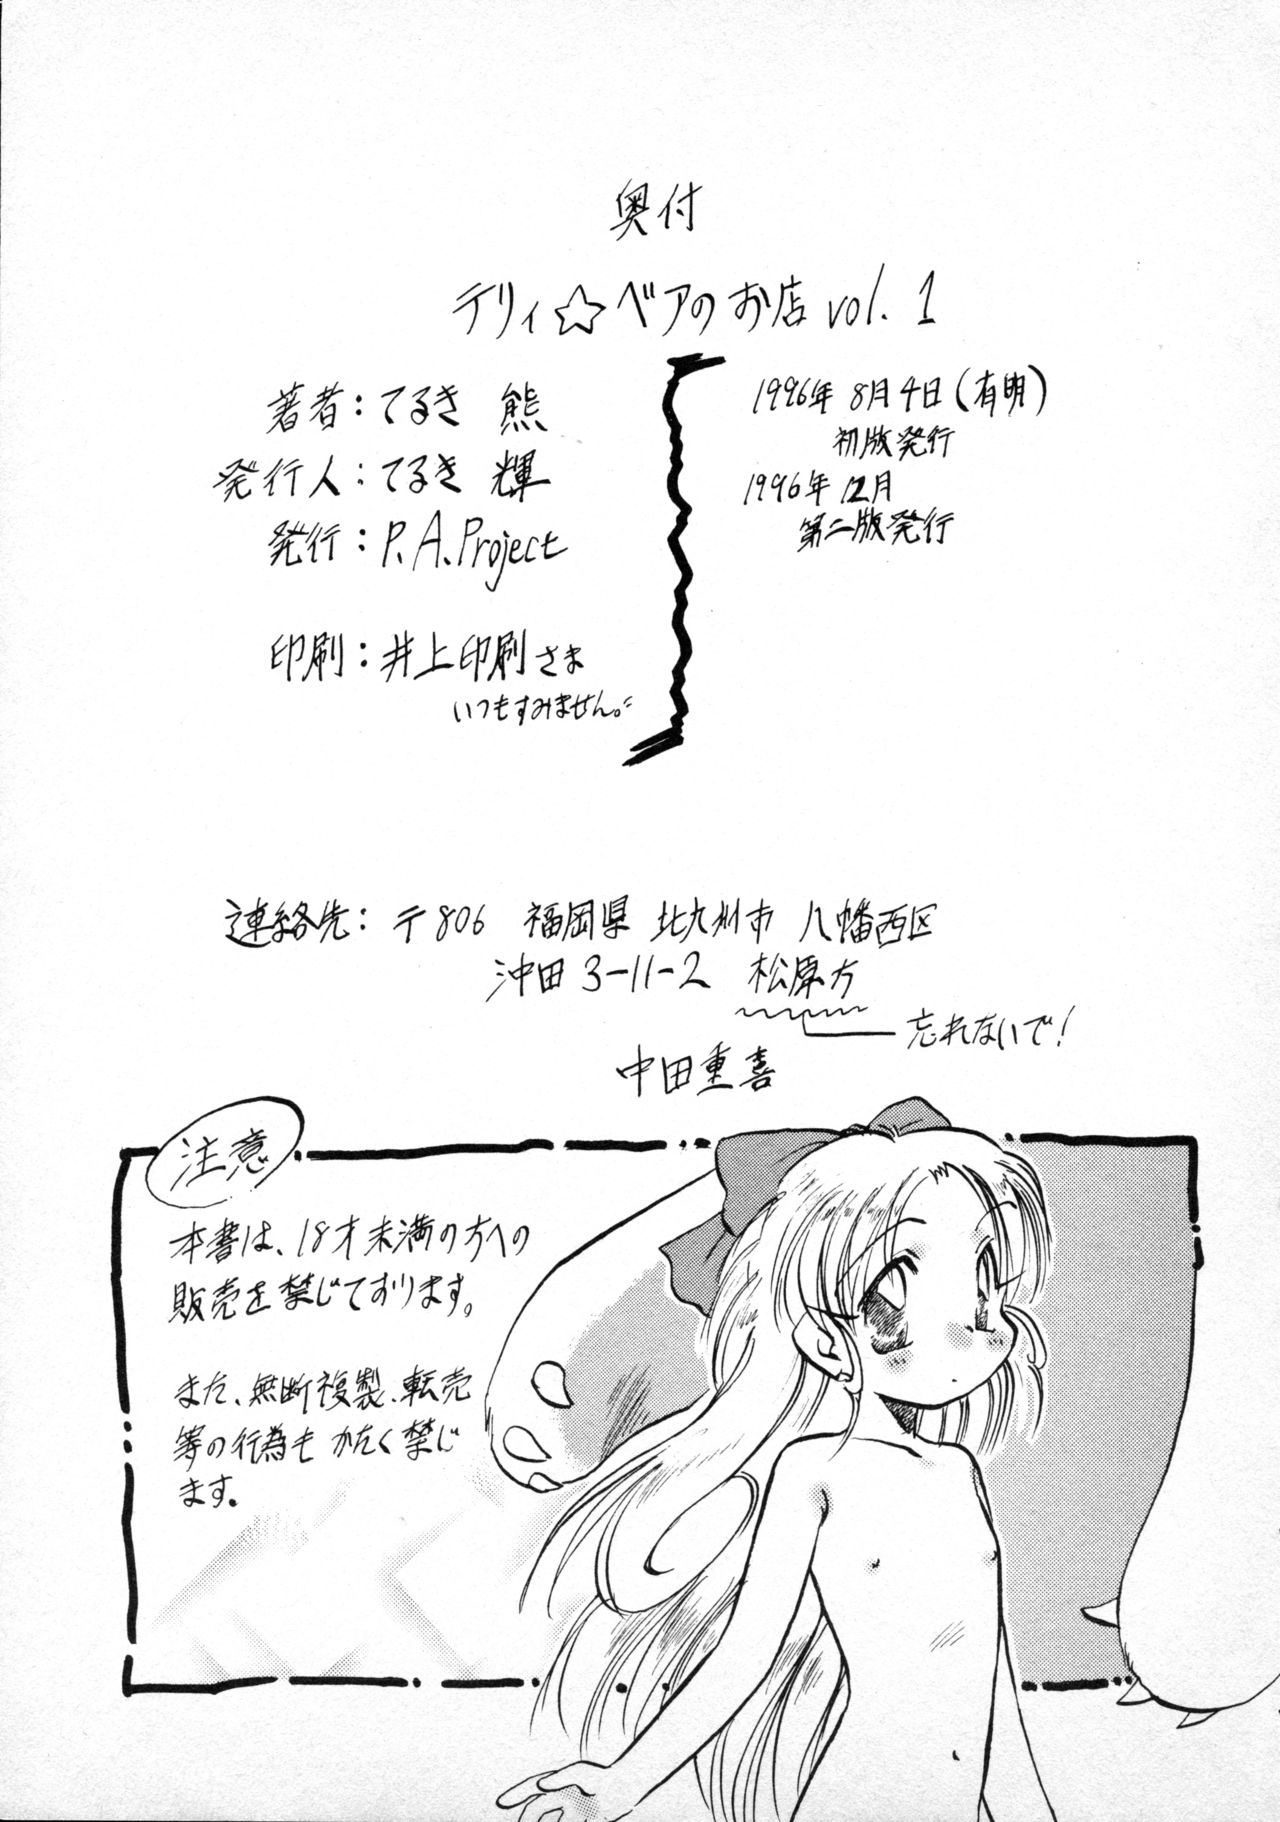 奥付
テリィ☆ベアのお店 vol. 1
著者：てるき 熊
発行人：てるき 輝
発行：P.A.Project
印刷：井上印刷さま
いつもすみません。
1996年 8月4日(有明)
初版発行
1996年 12月
第二版発行
連絡先：〒806 福岡県 北九州市 八幡西区
沖田 3-11-2 松原方
忘れないで！
中田重喜
注意
本書は、18才未満の方への
販売を禁じております。
また、無断複製、転売
等の行為も かたく禁じ
ます。